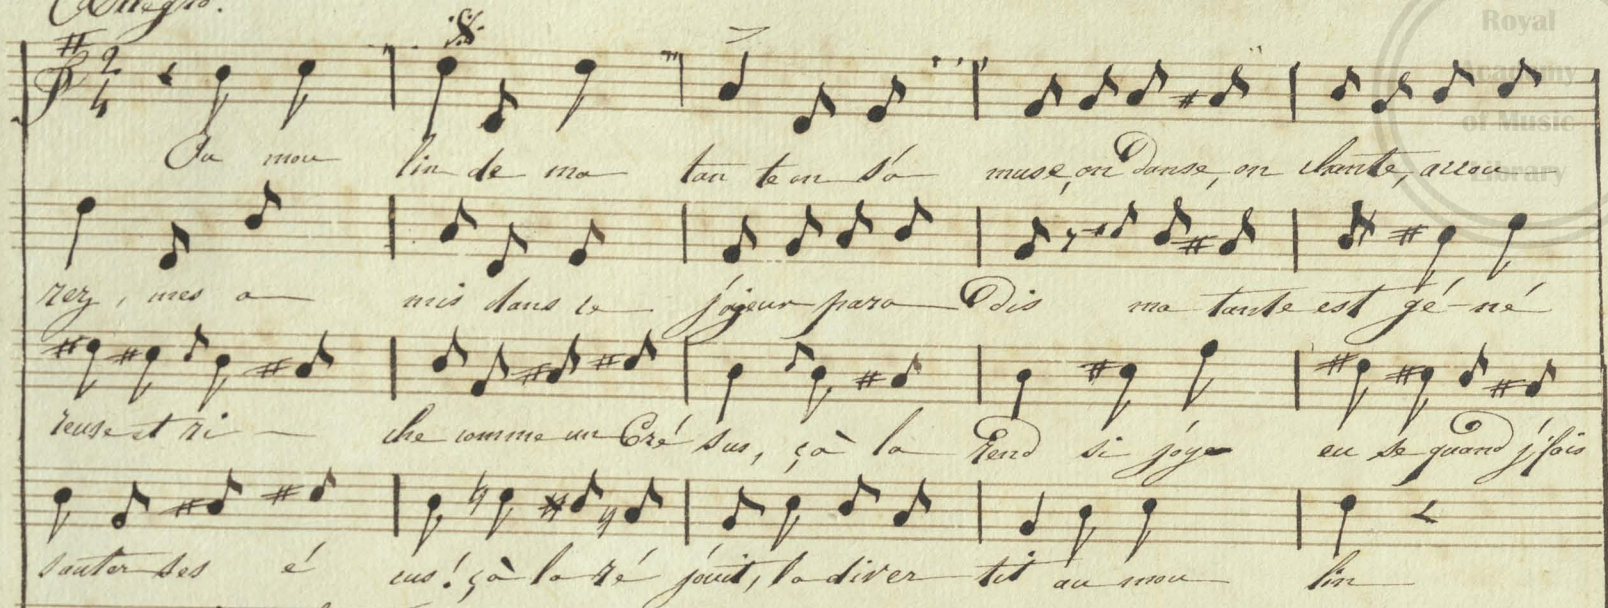 Allegro.
Royal
Academy
of Music
Library
2
4
Au mou lin de ma tan te on s'a muse, on danse, on chante, accou
rez, mes a mis dans le joyeux para dis ma tante est gé né
reuse et ri che comme un Cré sus, çà la rend si joye eu se quand j'fais
sauter ses é cus! çà la ré jouit, la diver tit au mou lin